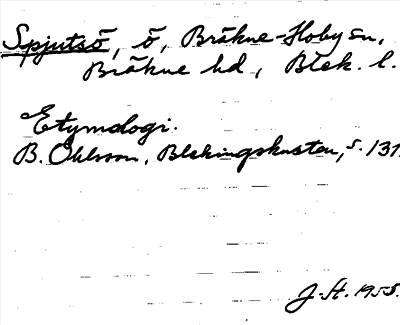 Spjutsö, ö, Bräkne-Hoby sn,
Bräkne hd, Blek. l.
Etymologi.
B. Ohlsson, Blekingskusten, s. 131.
J. St. 1958.